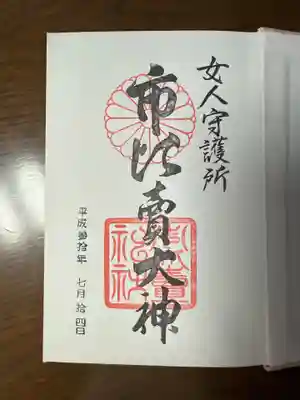 女人守護所
市比賣大神
平成參拾年 七月拾四日